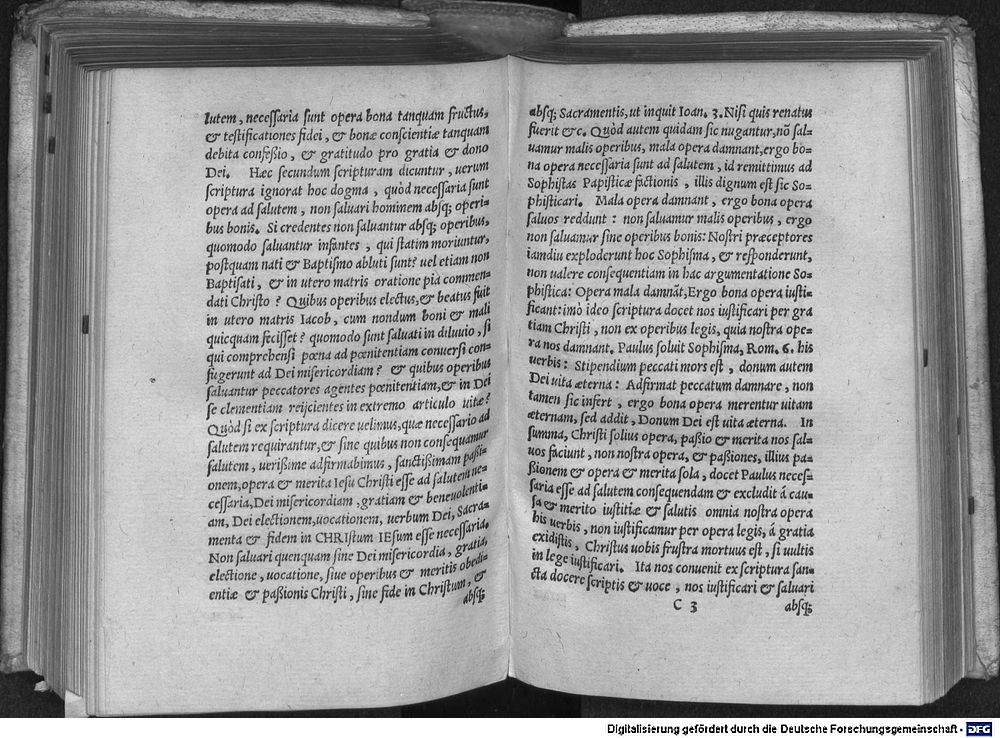 lutem, neceſſaria ſunt opera bona tanquam fructus,
& teſtificationes fidei, & bonæ conſcientiæ tanquam
debita confeßio, & gratitudo pro gratia & dono
Dei. Hæc ſecundum ſcripturam dicuntur, uerum
ſcriptura ignorat hoc dogma, quòd neceſſaria ſunt
opera ad ſalutem, non ſaluari hominem abſq; operi=
bus bonis. Si credentes non ſaluantur abſq; operibus,
quomodo ſaluantur infantes, qui ſtatim moriuntur,
poſtquam nati & Baptiſmo abluti ſunt? uel etiam non
Baptiſati, & in utero matris oratione pia commen=
dati Chriſto? Quibus operibus electus, & beatus fuit
in utero matris Iacob, cum nondum boni & mali
quicquam feciſſet? quomodo ſunt ſaluati in diluuio, ſi
qui comprehenſi pœna ad pœnitentiam conuerſi con=
fugerunt ad Dei miſericordiam? & quibus operibus
ſaluantur peccatores agentes pœnitentiam, & in Dei
ſe clementiam reijcientes in extremo articulo uitæ?
Quòd ſi ex ſcriptura dicere uelimus, quæ neceſſario ad
ſalutem requirantur, & ſine quibus non conſequamur
ſalutem, ueriſime adfirmabimus, ſanctißimam paßi=
onem, opera & merita Ieſu Chriſti eſſe ad ſalutem ne=
ceſſaria, Dei miſericordiam, gratiam & beneuolenti=
am, Dei electionem, uocationem, uerbum Dei, Sacra=
menta & fidem in CHRIſtum IEſum eſſe neceſſaria.
Non ſaluari quenquam ſine Dei miſericordia, gratia,
electione, uocatione, ſiue operibus & meritis obedi=
entiæ & paßionis Chriſti, ſine fide in Chriſtum, &
abſq;
abſq; Sacramentis, ut inquit Ioan. 3. Niſi quis renatus
fuerit &c. Quòd autem quidam ſic nugantur, nõ ſal=
uamur malis operibus, mala opera damnant, ergo bo=
na opera neceſſaria ſunt ad ſalutem, id remittimus ad
Sophiſtas Papiſticæ factionis, illis dignum eſt ſic So=
phiſticari. Mala opera damnant, ergo bona opera
ſaluos reddunt: non ſaluamur malis operibus, ergo
non ſaluamur ſine operibus bonis: Noſtri præceptores
iamdiu exploderunt hoc Sophiſma, & reſponderunt,
non ualere conſequentiam in hac argumentatione So=
phiſtica: Opera mala damnãt, Ergo bona opera iuſti=
ficant: imò ideo ſcriptura docet nos iuſtificari per gra
tiam Chriſti, non ex operibus legis, quia noſtra ope=
ra nos damnant. Paulus ſoluit Sophiſma, Rom. 6. his
uerbis: Stipendium peccati mors eſt, donum autem
Dei uita æterna: Adfirmat peccatum damnare, non
tamen ſic infert, ergo bona opera merentur uitam
æternam, ſed addit, Donum Dei eſt uita æterna. In
ſumma, Chriſti ſolius opera, paßio & merita nos ſal=
uos faciunt, non noſtra opera, & paßiones, illius pa=
ßionem & opera & merita ſola, docet Paulus neceſ=
ſaria eſſe ad ſalutem conſequendam & excludit á cau=
ſa & merito iuſtitiæ & ſalutis omnia noſtra opera
his uerbis, non iuſtificamur per opera legis, á gratia
exidiſtis, Chriſtus uobis fruſtra mortuus eſt, ſi uultis
in lege iuſtificari. Ita nos conuenit ex ſcriptura ſan=
cta docere ſcriptis & uoce, nos iuſtificari & ſaluari
C 3 abſq;
Digitalisierung gefördert durch die Deutsche Forschungsgemeinschaft - DFG